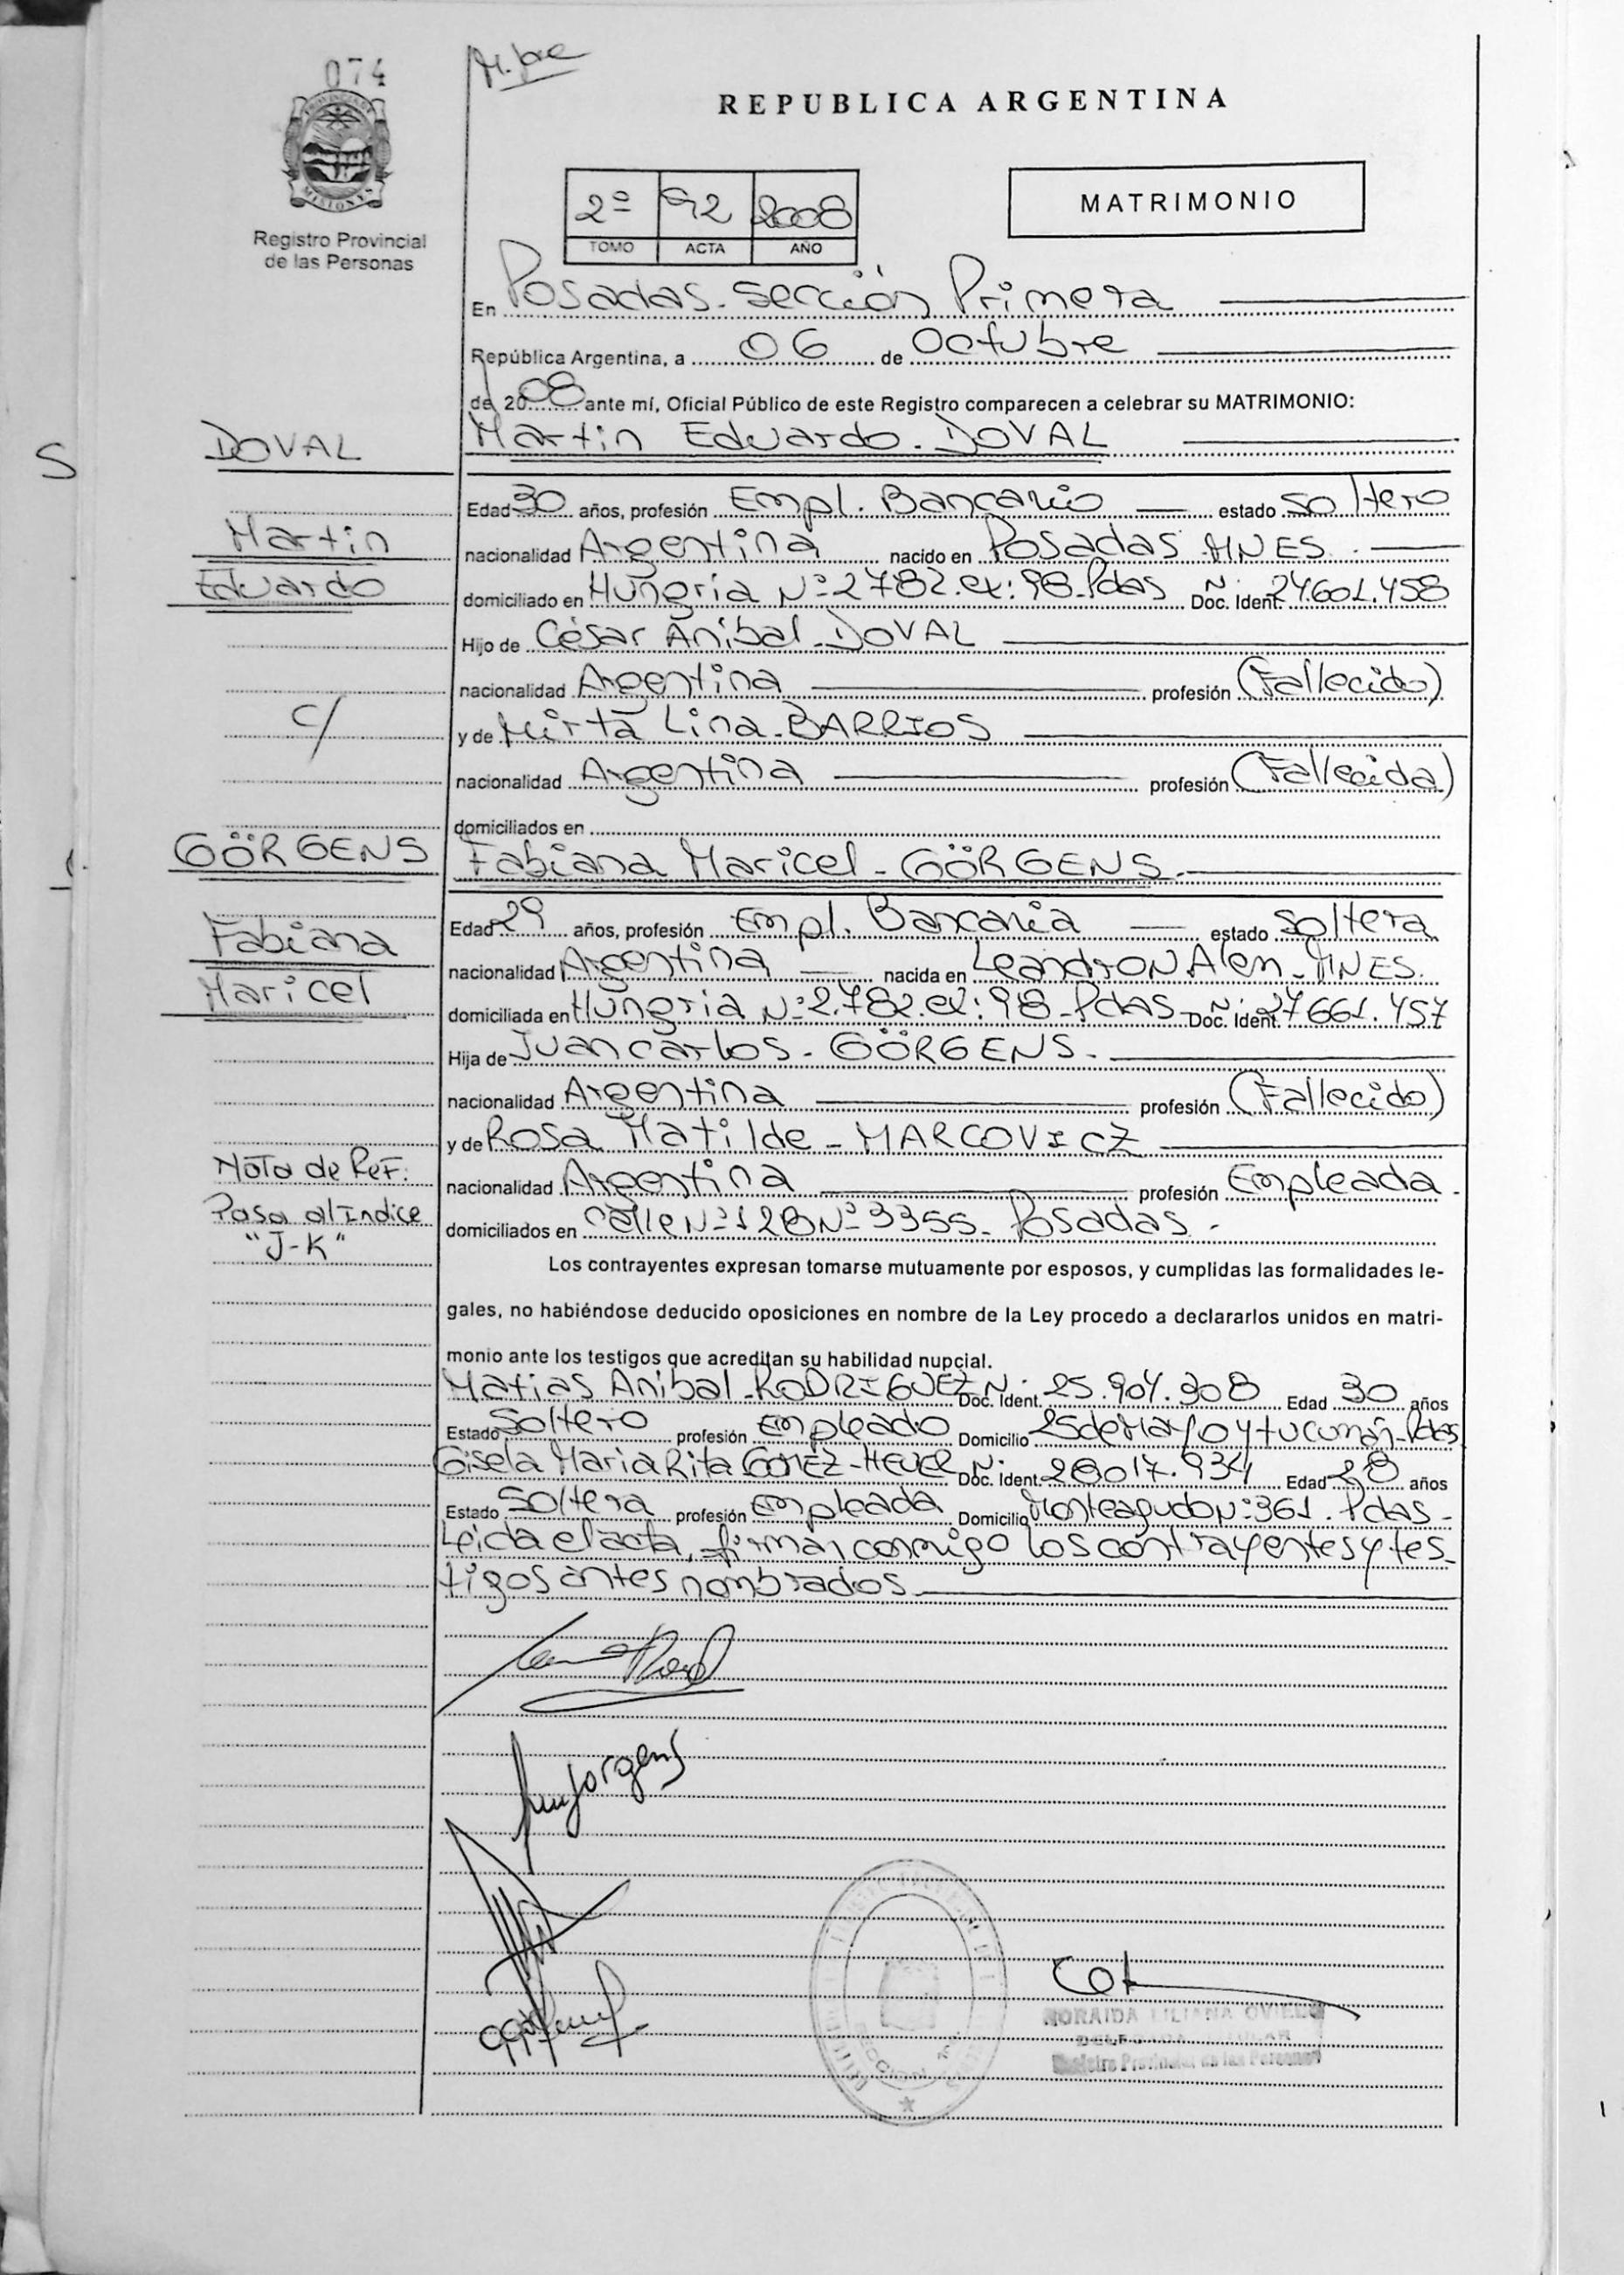 074
REPUBLICA ARGENTINA
MATRIMONIO
2º 92 2008
TOMO ACTA AÑO
Registro Provincial
de las Personas
En Posadas-Sección Primera
República Argentina, a 06 de Octubre
del 2008 ante mí, Oficial Público de este Registro comparecen a celebrar su MATRIMONIO:
DOVAL
Martin Eduardo-DOVAL
S
Edad 30 años, profesión Empl. Bancario estado Soltero
Martin
nacionalidad Argentina nacido en Posadas-MNES.
Eduardo
domiciliado en Hungria Nº2782.ex:98-Pdas Doc. Ident. Nº 24.601.458
Hijo de César Anibal-DOVAL
nacionalidad Argentina profesión (Fallecido)
c/
y de Mirta Lina-BARRIOS
nacionalidad Argentina profesión (Fallecida)
domiciliados en
GÖRGENS
Fabiana Maricel-GÖRGENS.
Edad 29 años, profesión Empl. Bancaria estado Soltera
Fabiana
nacionalidad Argentina nacida en Leandro N Alem-MNES.
Maricel
domiciliada en Hungria Nº2.782.ex:98-Pdas-Doc. Ident. Nº 27661.457
Hija de Juan Carlos-GÖRGENS-
nacionalidad Argentina profesión (Fallecido)
y de Rosa Matilde-MARCOVICZ
Nota de Ref:
nacionalidad Argentina profesión Empleada-
Pasa al Indice
domiciliados en Calle Nº128 Nº3355-Posadas-
"J-K"
Los contrayentes expresan tomarse mutuamente por esposos, y cumplidas las formalidades le-
gales, no habiéndose deducido oposiciones en nombre de la Ley procedo a declararlos unidos en matri-
monio ante los testigos que acreditan su habilidad nupcial.
Matias Anibal-RODRIGUEZ Nº Doc. Ident. 25.904.308 Edad 30 años
Estado Soltero profesión Empleado Domicilio 25 de Mayo y Tucumán-Pdas
Gisela Maria Rita GOMEZ- Nº Doc. Ident. 28017.934 Edad 28 años
Estado Soltera profesión Empleada Domicilio Monteagudo Nº361. Pdas-
Leida el acta, firman conmigo los contrayentes y tes-
tigos antes nombrados
LILIANA
Registro Provincial de las Personas